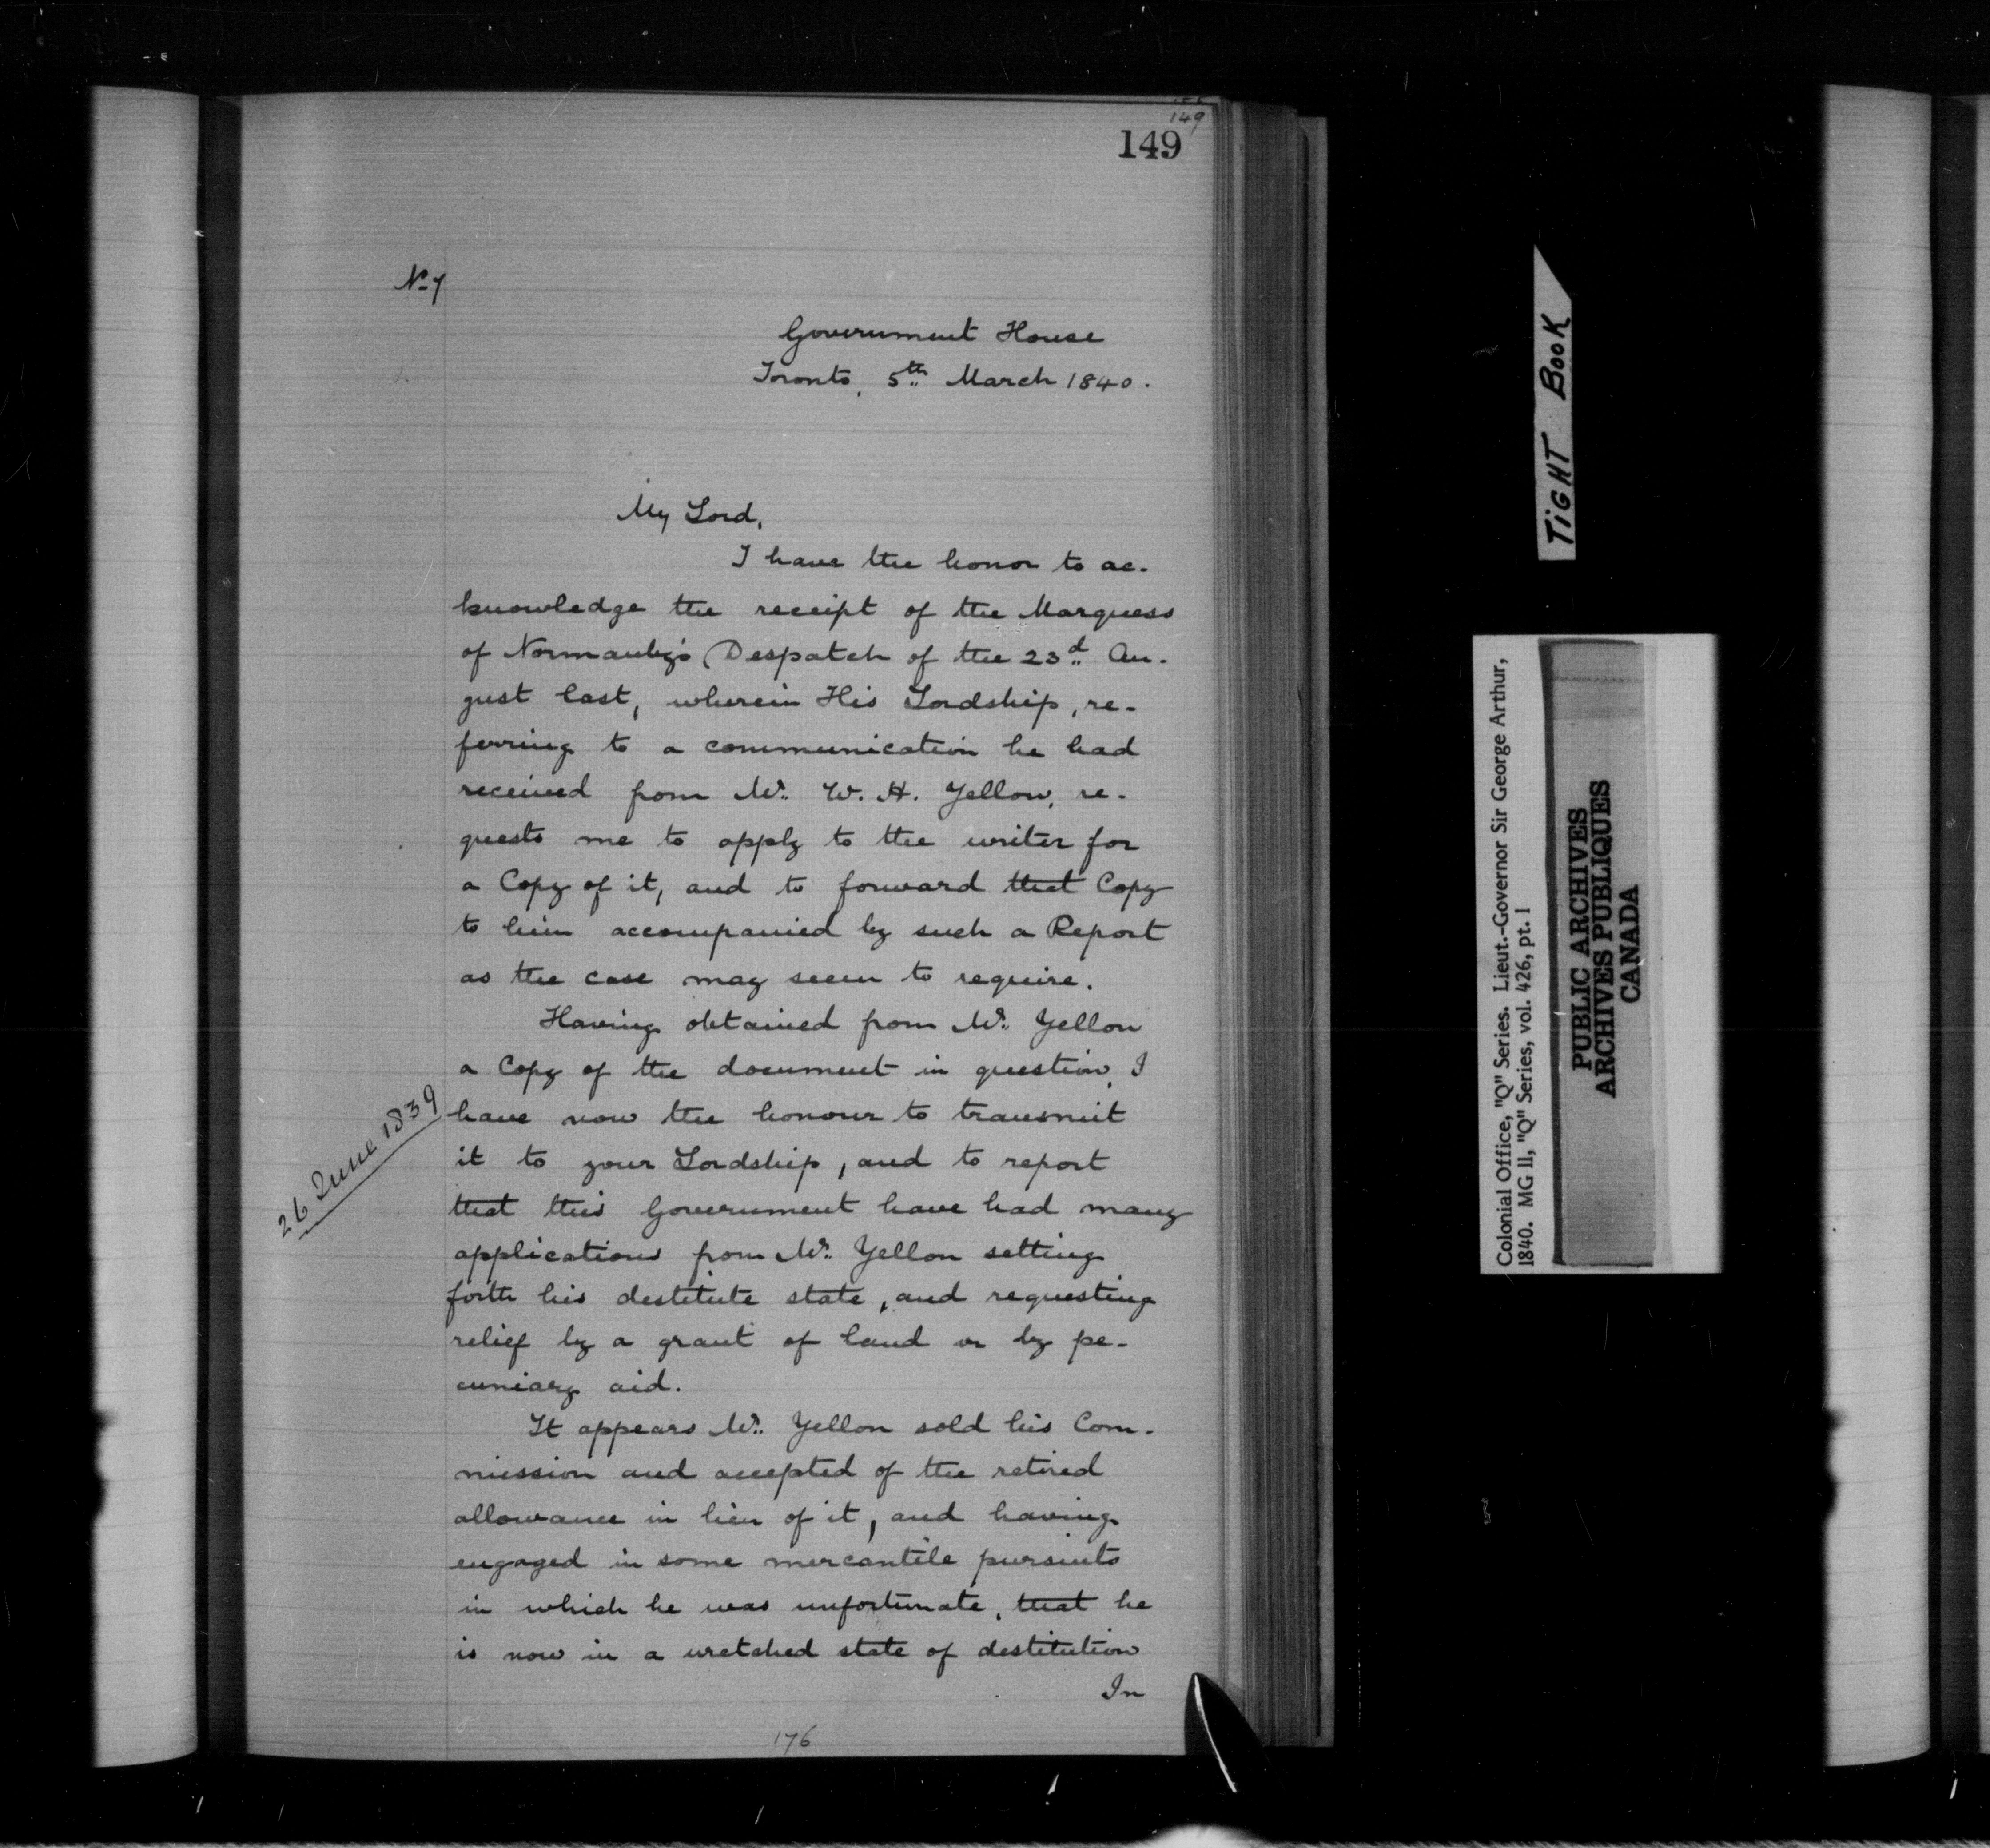 149
149
No 7
Government House
Toronto, 5th March 1840.
My Lord,
I have the honor to ac-
knowledge the receipt of the Marquess
of Normanby's Despatch of the 23d Au-
gust last, wherein His Lordship, re-
ferring to a communication he had
received from Mr. W. H. Yellow, re-
quests me to apply to the writer for
a Copy of it, and to forward that Copy
to him accompanied by such a Report
as the case may seem to require.
Having obtained from Mr. Yellon
a Copy of the document in question, I
26 June 1839
have now the honour to transmit
it to your Lordship, and to report
that this Government have had many
applications from Mr. Yellon setting
forth his destitute state, and requesting
relief by a grant of land or by pe-
cuniary aid.
It appears Mr. Yellon sold his Com-
mission and accepted of the retired
allowance in lieu of it, and having
engaged in some mercantile pursuits
in which he was unfortunate, that he
is now in a wretched state of destitution
In
176
TIGHT BOOK
Colonial Office, "Q" Series. Lieut.-Governor Sir George Arthur,
1840. MG 11, "Q" Series, vol. 426, pt. 1
PUBLIC ARCHIVES
ARCHIVES PUBLIQUES
CANADA